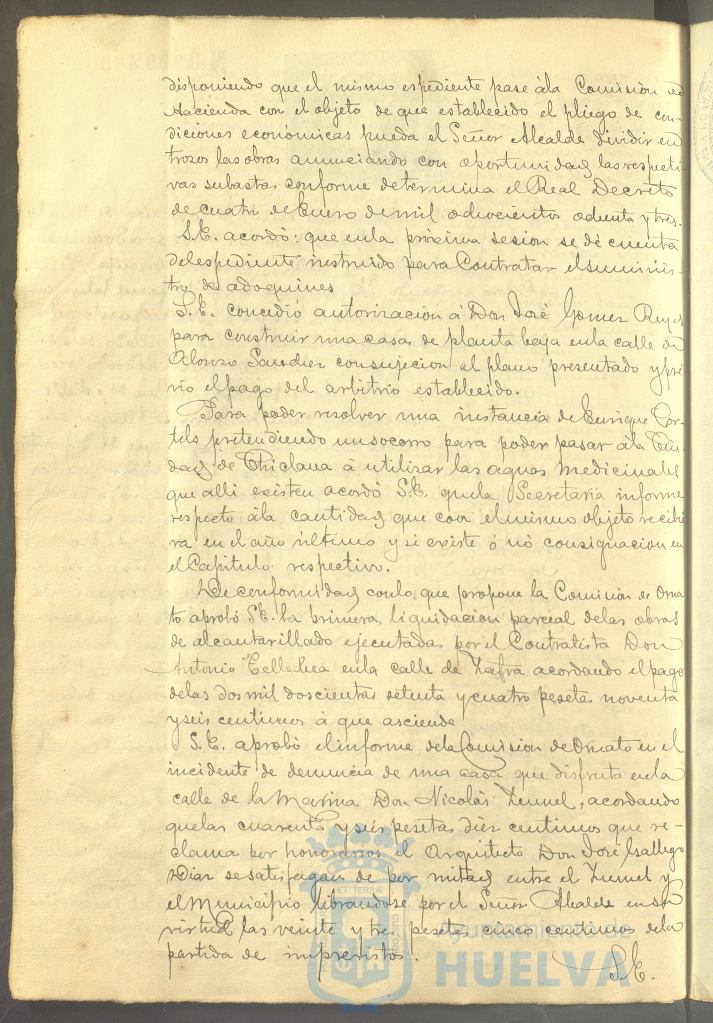 disponiendo que el mismo espediente pase á la Comisión de
Hacienda con el objeto de que establecido el pliego de con-
diciones económicas pueda el Señor Alcalde dividir en
trozos las obras anunciando con oportunidad las respecti-
vas subastas conforme determina el Real Decreto
de cuatro de Enero de mil ochocientos ochenta y tres.
S.E. acordó: que en la próxima sesion se dé cuenta
del espediente instruido para Contratar el suminis-
tro de adoquines
S.E. concedió autorización á Don José Gomez Reyes
para construir una casa de planta baja en la calle de
Alonso Sanchez con sujecion al plano presentado y pré-
vio el pago del arbitrio establecido.
Para poder resolver una instancia de Enrique Cor-
tils pretendiendo un socorro para poder pasar á la Ciu-
dad de Chiclana á utilizar las aguas medicinales
que alli existen acordó S.E. que la Secretaría informe
respecto á la cantidad que con el mismo objeto recibie-
ra en el año último y si existe ó nó consignacion en
el Capítulo respectivo.
De conformidad con lo que propone la Comision de Orna-
to aprobó S.E. la primera liquidacion parcial de las obras
de alcantarillado ejecutadas por el Contratista Don
Antonio Tellechea en la calle de Zafra acordando el pago
de las dos mil doscientas setenta y cuatro pesetas noventa
y seis centimos á que asciende
S.E. aprobó el informe de la Comision de Ornato en el
incidente de denuncia de una casa que disfruta en la
calle de la Marina Don Nicolás, acordando
que las cuarenta y seis pesetas diez centimos que re-
clama por honorarios el Arquitecto Don José Gallego
Diaz se satisfagan de por mitad entre el y
el Municipio librandose por el Señor Alcalde en su
virtud las veinte y tres pesetas cinco centimos de la
partida de imprevistos.
S.E.
Ayuntamiento de
HUELVA